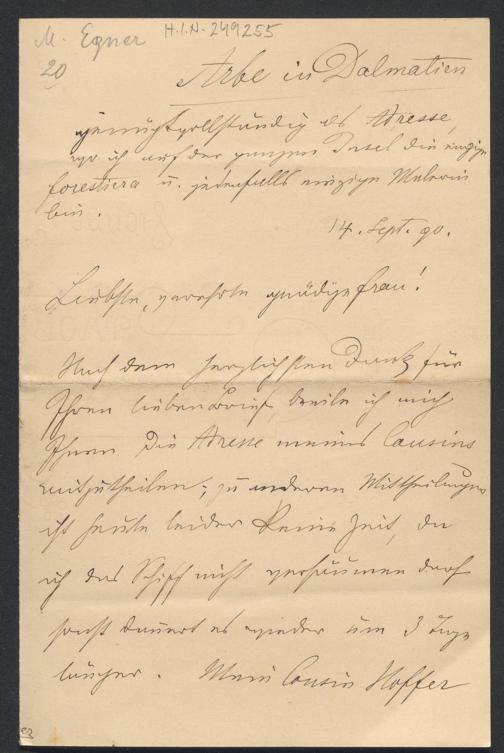 M. Egner H.I.N-249255
20
Arbe in Dalmatien
genügt vollständig als Adresse,
wo ich auf der ganzen Insel die einzige
forestiera u. jedenfalls einzige Malerin
bin.
14. Sept. 90.
Liebste, verehrte gnädige Frau!
Nach dem herzlichsten Dank für
Ihren lieben Brief, beeile ich mich
Ihnen die Adresse meines Cousins
mitzutheilen; zu anderen Mittheilungen
ist heute leider keine Zeit, da
ich das Schiff nicht versäumen darf
sonst dauert es wieder um 3 Tage
länger. Mein Cousin Hoffer